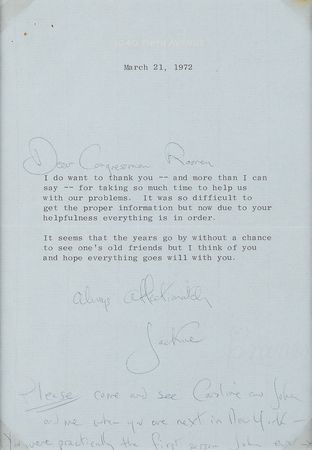 1040 FIFTH AVENUE
March 21, 1972
Dear Congressman Rooney
I do want to thank you -- and more than I can
say -- for taking so much time to help us
with our problems. It was so difficult to
get the proper information but now due to your
helpfulness everything is in order.
It seems that the years go by without a chance
to see one's old friends but I think of you
and hope everything goes will with you.
Always affectionately
Jackie
Please come and see Caroline and John
and me when you are next in New York —
You were practically the first person John ever